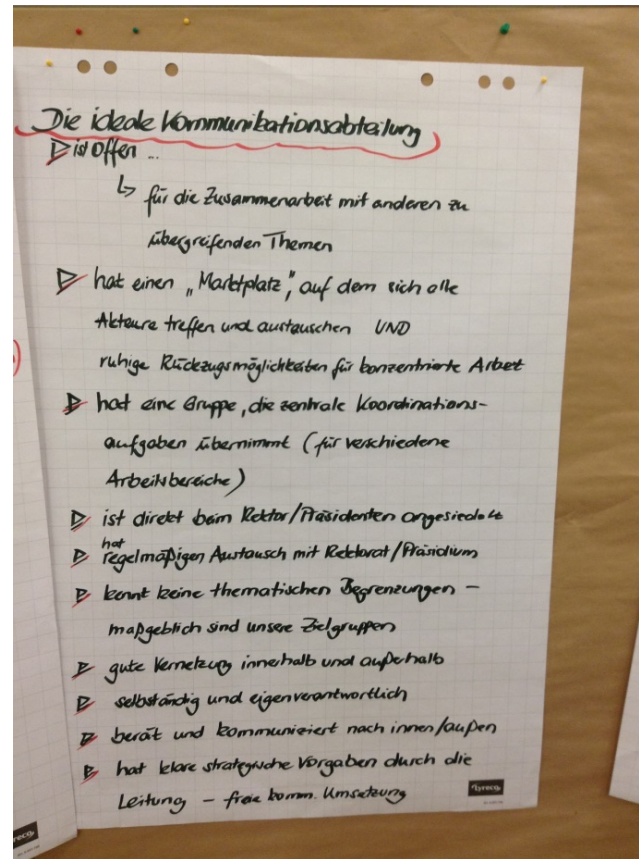 Die ideale Kommunikationsabteilung
ist offen ...
↳ für die Zusammenarbeit mit anderen zu
übergreifenden Themen
hat einen „Marktplatz“, auf dem sich alle
Akteure treffen und austauschen UND
ruhige Rückzugsmöglichkeiten für konzentrierte Arbeit
hat eine Gruppe, die zentrale Koordinations-
aufgaben übernimmt (für verschiedene
Arbeitsbereiche)
ist direkt beim Rektor/Präsidenten angesiedelt
hat
regelmäßigen Austausch mit Rektorat/Präsidium
kennt keine thematischen Begrenzungen –
maßgeblich sind unsere Zielgruppen
gute Vernetzung innerhalb und außerhalb
selbständig und eigenverantwortlich
berät und kommuniziert nach innen/außen
hat klare strategische Vorgaben durch die
Leitung – freie komm. Umsetzung
lyreco